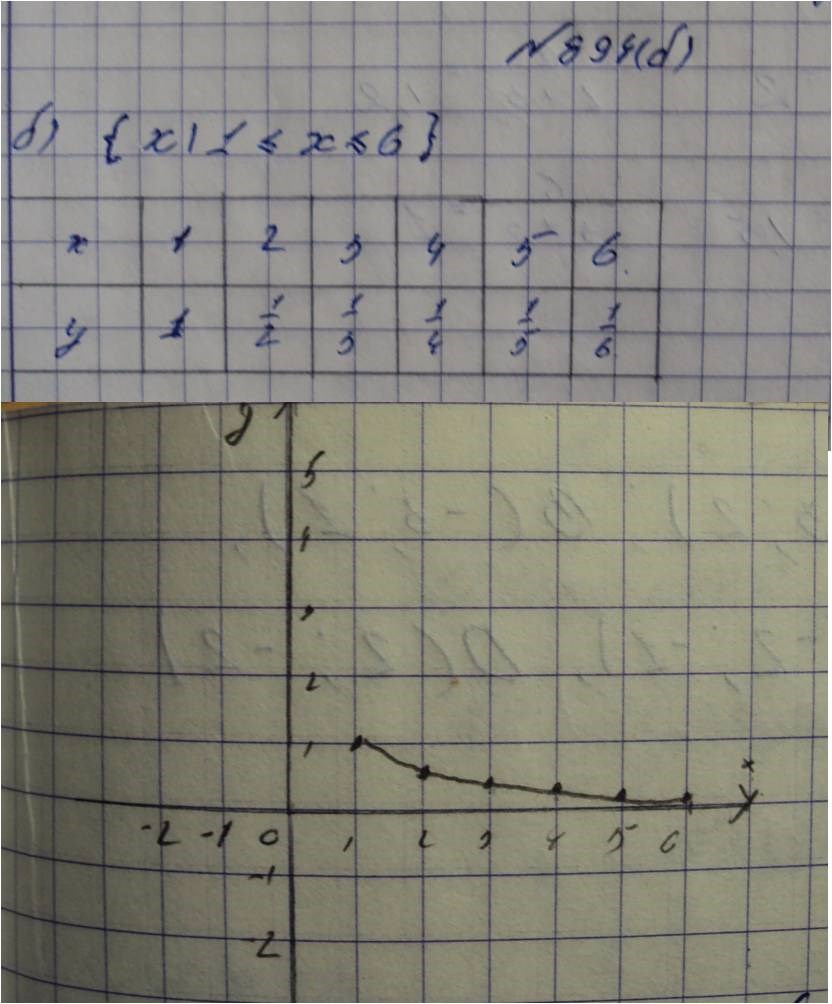 № 894(б)
б) { x | 1 ≤ x ≤ 6 }
x 1 2 3 4 5 6
y 1 1/2 1/3 1/4 1/5 1/6
y
5
4
3
2
1
x
-2 -1 0 1 2 3 4 5 6
-1
-2